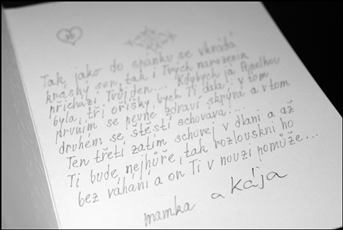 Tak jako do spánku se vkrádá
krásný sen, tak i Tvých narozenin
přichází Tvůj den... Kdybych já Popelkou
byla, tři oříšky bych Ti dala, v tom
prvním se pevné zdraví skrývá a v tom
druhém se štěstí schovává...
Ten třetí zatím schovej v dlani a až
Ti bude nejhůře, tak rozlouskni ho
bez váhání a on Ti v nouzi pomůže...
mamka a Kája